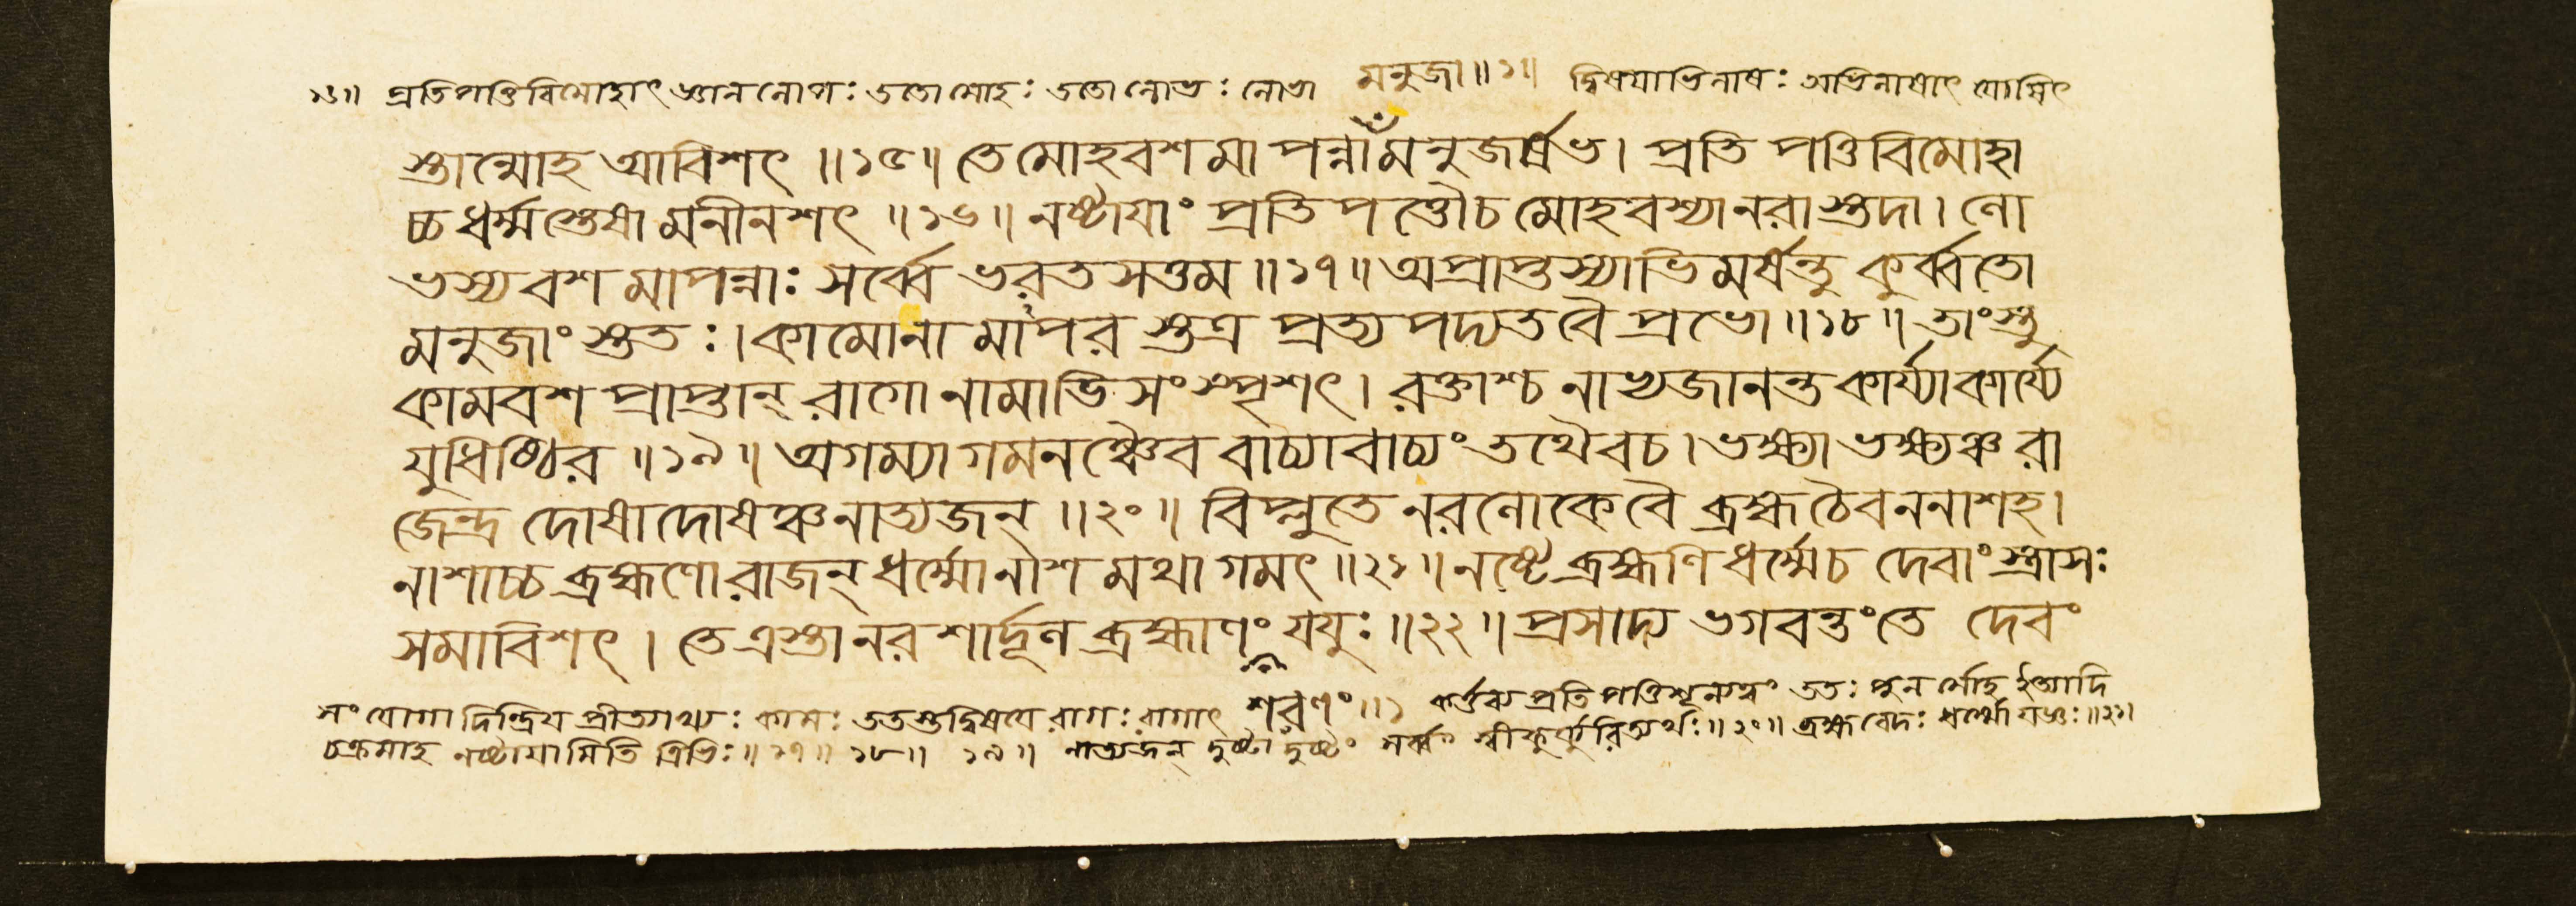 ১৬॥ প্রতিপত্তিবিমোহাৎ জ্ঞানলোপঃ ততো মোহঃ ততো লোভঃ লোভা মনুজা॥১॥ দ্বিষয়াভিলাষঃ অভিলাষাৎ যোষিৎ
স্তান্মোহ আবিশৎ ॥১৫॥ তে মোহবশমাপন্না মনুজর্ষভ। প্রতিপত্তিবিমোহা
চ্চ ধর্ম্মস্তেষামনীনশৎ ॥১৬॥ নষ্টায়াং প্রতিপত্তৌ চ মোহবশ্যা নরাস্তদা। লো
ভস্য বশমাপন্নাঃ সর্ব্বে ভরতসত্তম ॥১৭॥ অপ্রাপ্তস্যাভিমর্ষন্তু কুর্ব্বতো
মনুজাংস্ততঃ। কামো নামাপরস্তত্র প্রত্যপদ্যত বৈ প্রভো ॥১৮॥ তাংস্তু
কামবশপ্রাপ্তান্ রাগো নামাভিসংস্পৃশৎ। রক্তাশ্চ নাভ্যজানন্ত কার্য্যাকার্য্যে
যুধিষ্ঠির ॥১৯॥ অগম্যাগমনঞ্চৈব বাচ্যাবাচ্যং তথৈব চ। ভক্ষ্যাভক্ষ্যঞ্চ রা
জেন্দ্র দোষাদোষঞ্চ নাত্যজন্ ॥২০॥ বিপ্লুতে নরলোকে বৈ ব্রহ্ম চৈব ননাশ হ।
নাশাচ্চ ব্রহ্মণো রাজন্ ধর্ম্মো নাশমথাগমৎ ॥২১॥ নষ্টে ব্রহ্মণি ধর্ম্মে চ দেবাংস্ত্রাসঃ
সমাবিশৎ। তে ত্রস্তা নরশার্দ্দূল ব্রহ্মাণং যযুঃ ॥২২॥ প্রসাদ্য ভগবন্তং তে দেবং
সংযোগাদিন্দ্রিয়প্রীত্যাখ্যঃ কামঃ ততস্তদ্বিষয়ে রাগঃ রাগাৎ শরণং॥১ কর্ত্তব্যপ্রতিপত্তিশূন্যত্বং ততঃ পুনর্মোহ ইত্যাদি
চক্রমাহ নষ্টায়ামিতি ত্রিভিঃ॥১৭॥ ১৮॥ ১৯॥ নাত্যজন্ দুষ্টাদুষ্টং সর্ব্বং স্বীকুর্ব্বন্নিত্যর্থঃ॥২০॥ ব্রহ্ম বেদঃ ধর্ম্মো যজ্ঞঃ॥২১॥